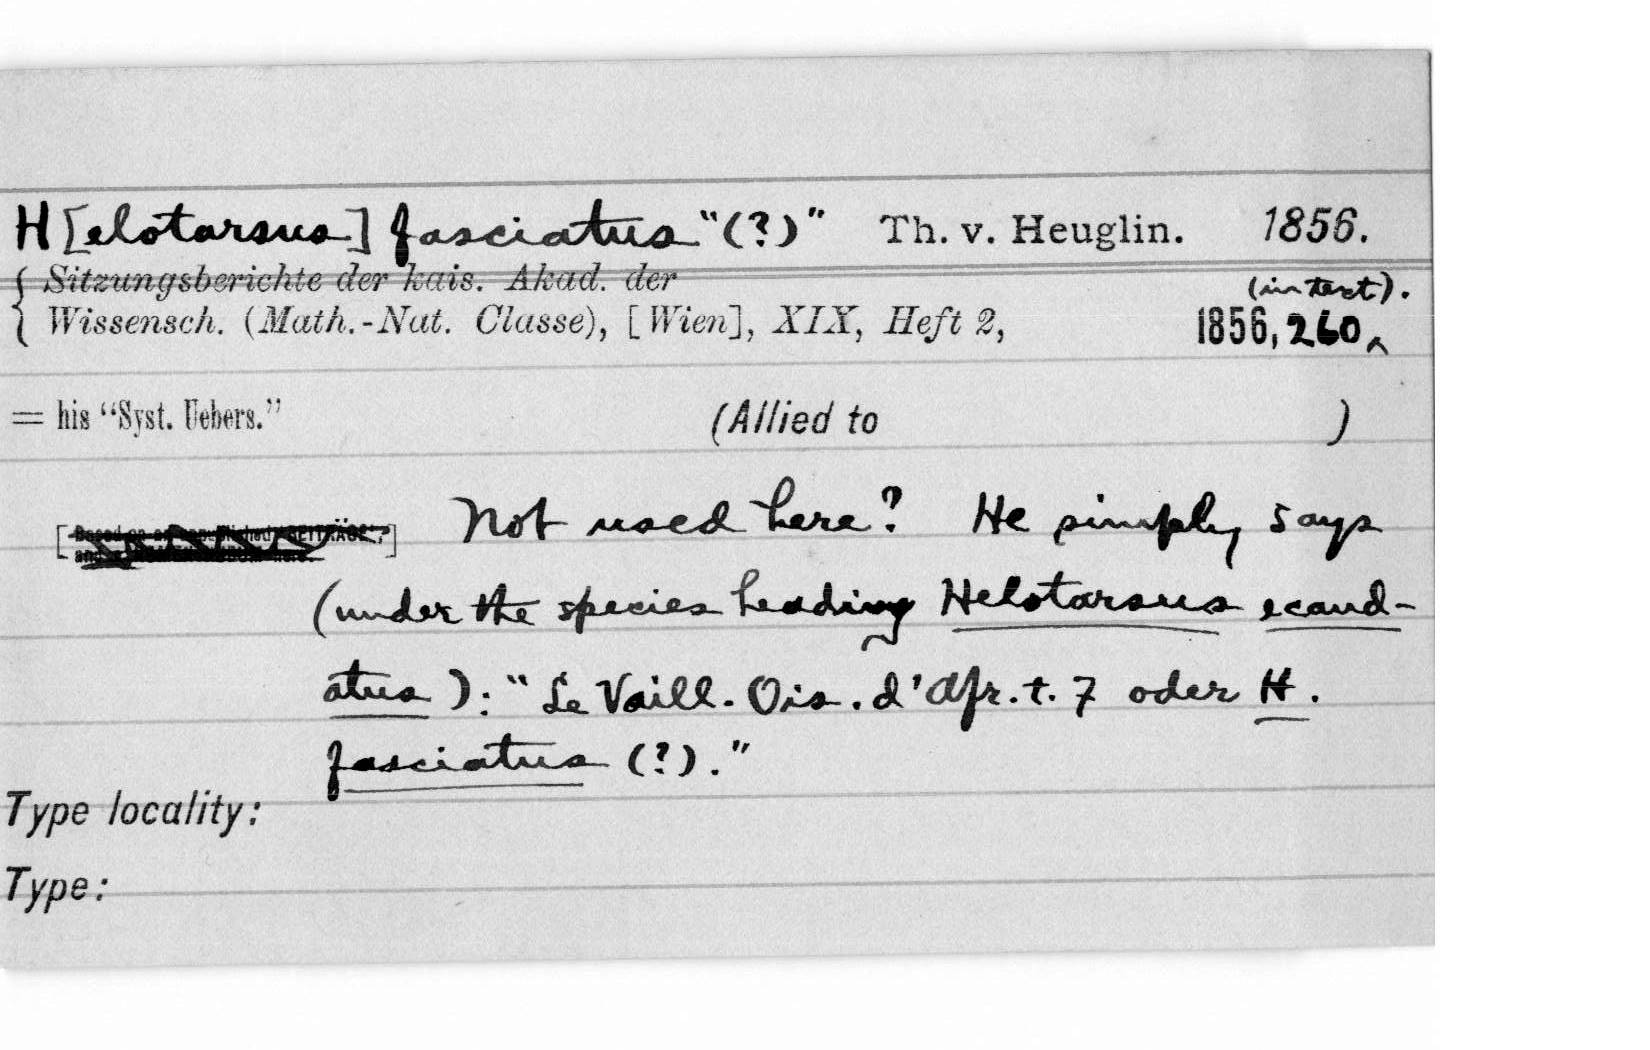 H[elotarsus] fasciatus "(?)" Th. v. Heuglin. 1856.
Sitzungsberichte der kais. Akad. der
(in text).
Wissensch. (Math.-Nat. Classe), [Wien], XIX, Heft 2, 1856, 260
= his "Syst. Uebers." (Allied to )
Not used here? He simply says
(under the species heading Helotarsus ecaud-
atus): "Le Vaill. Ois. d'Afr. t. 7 oder H.
fasciatus (?)."
Type locality:
Type: